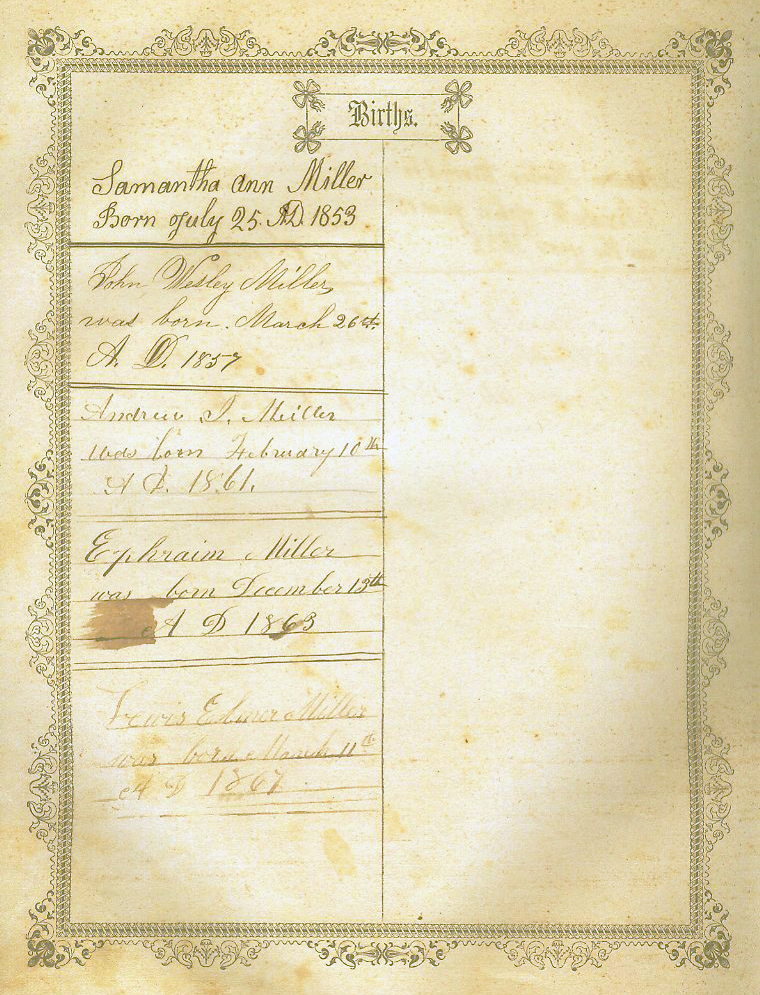 Births.
Samantha Ann Miller
Born July 25. A.D. 1853
John Wesley Miller
was born. March 26th.
A. D. 1857
Andrew J. Miller
was born February 10th
A D. 1861.
Ephraim Miller
was born December 13th
A D 1863
Lewis Elmer Miller
was born March 11th
A D 1867